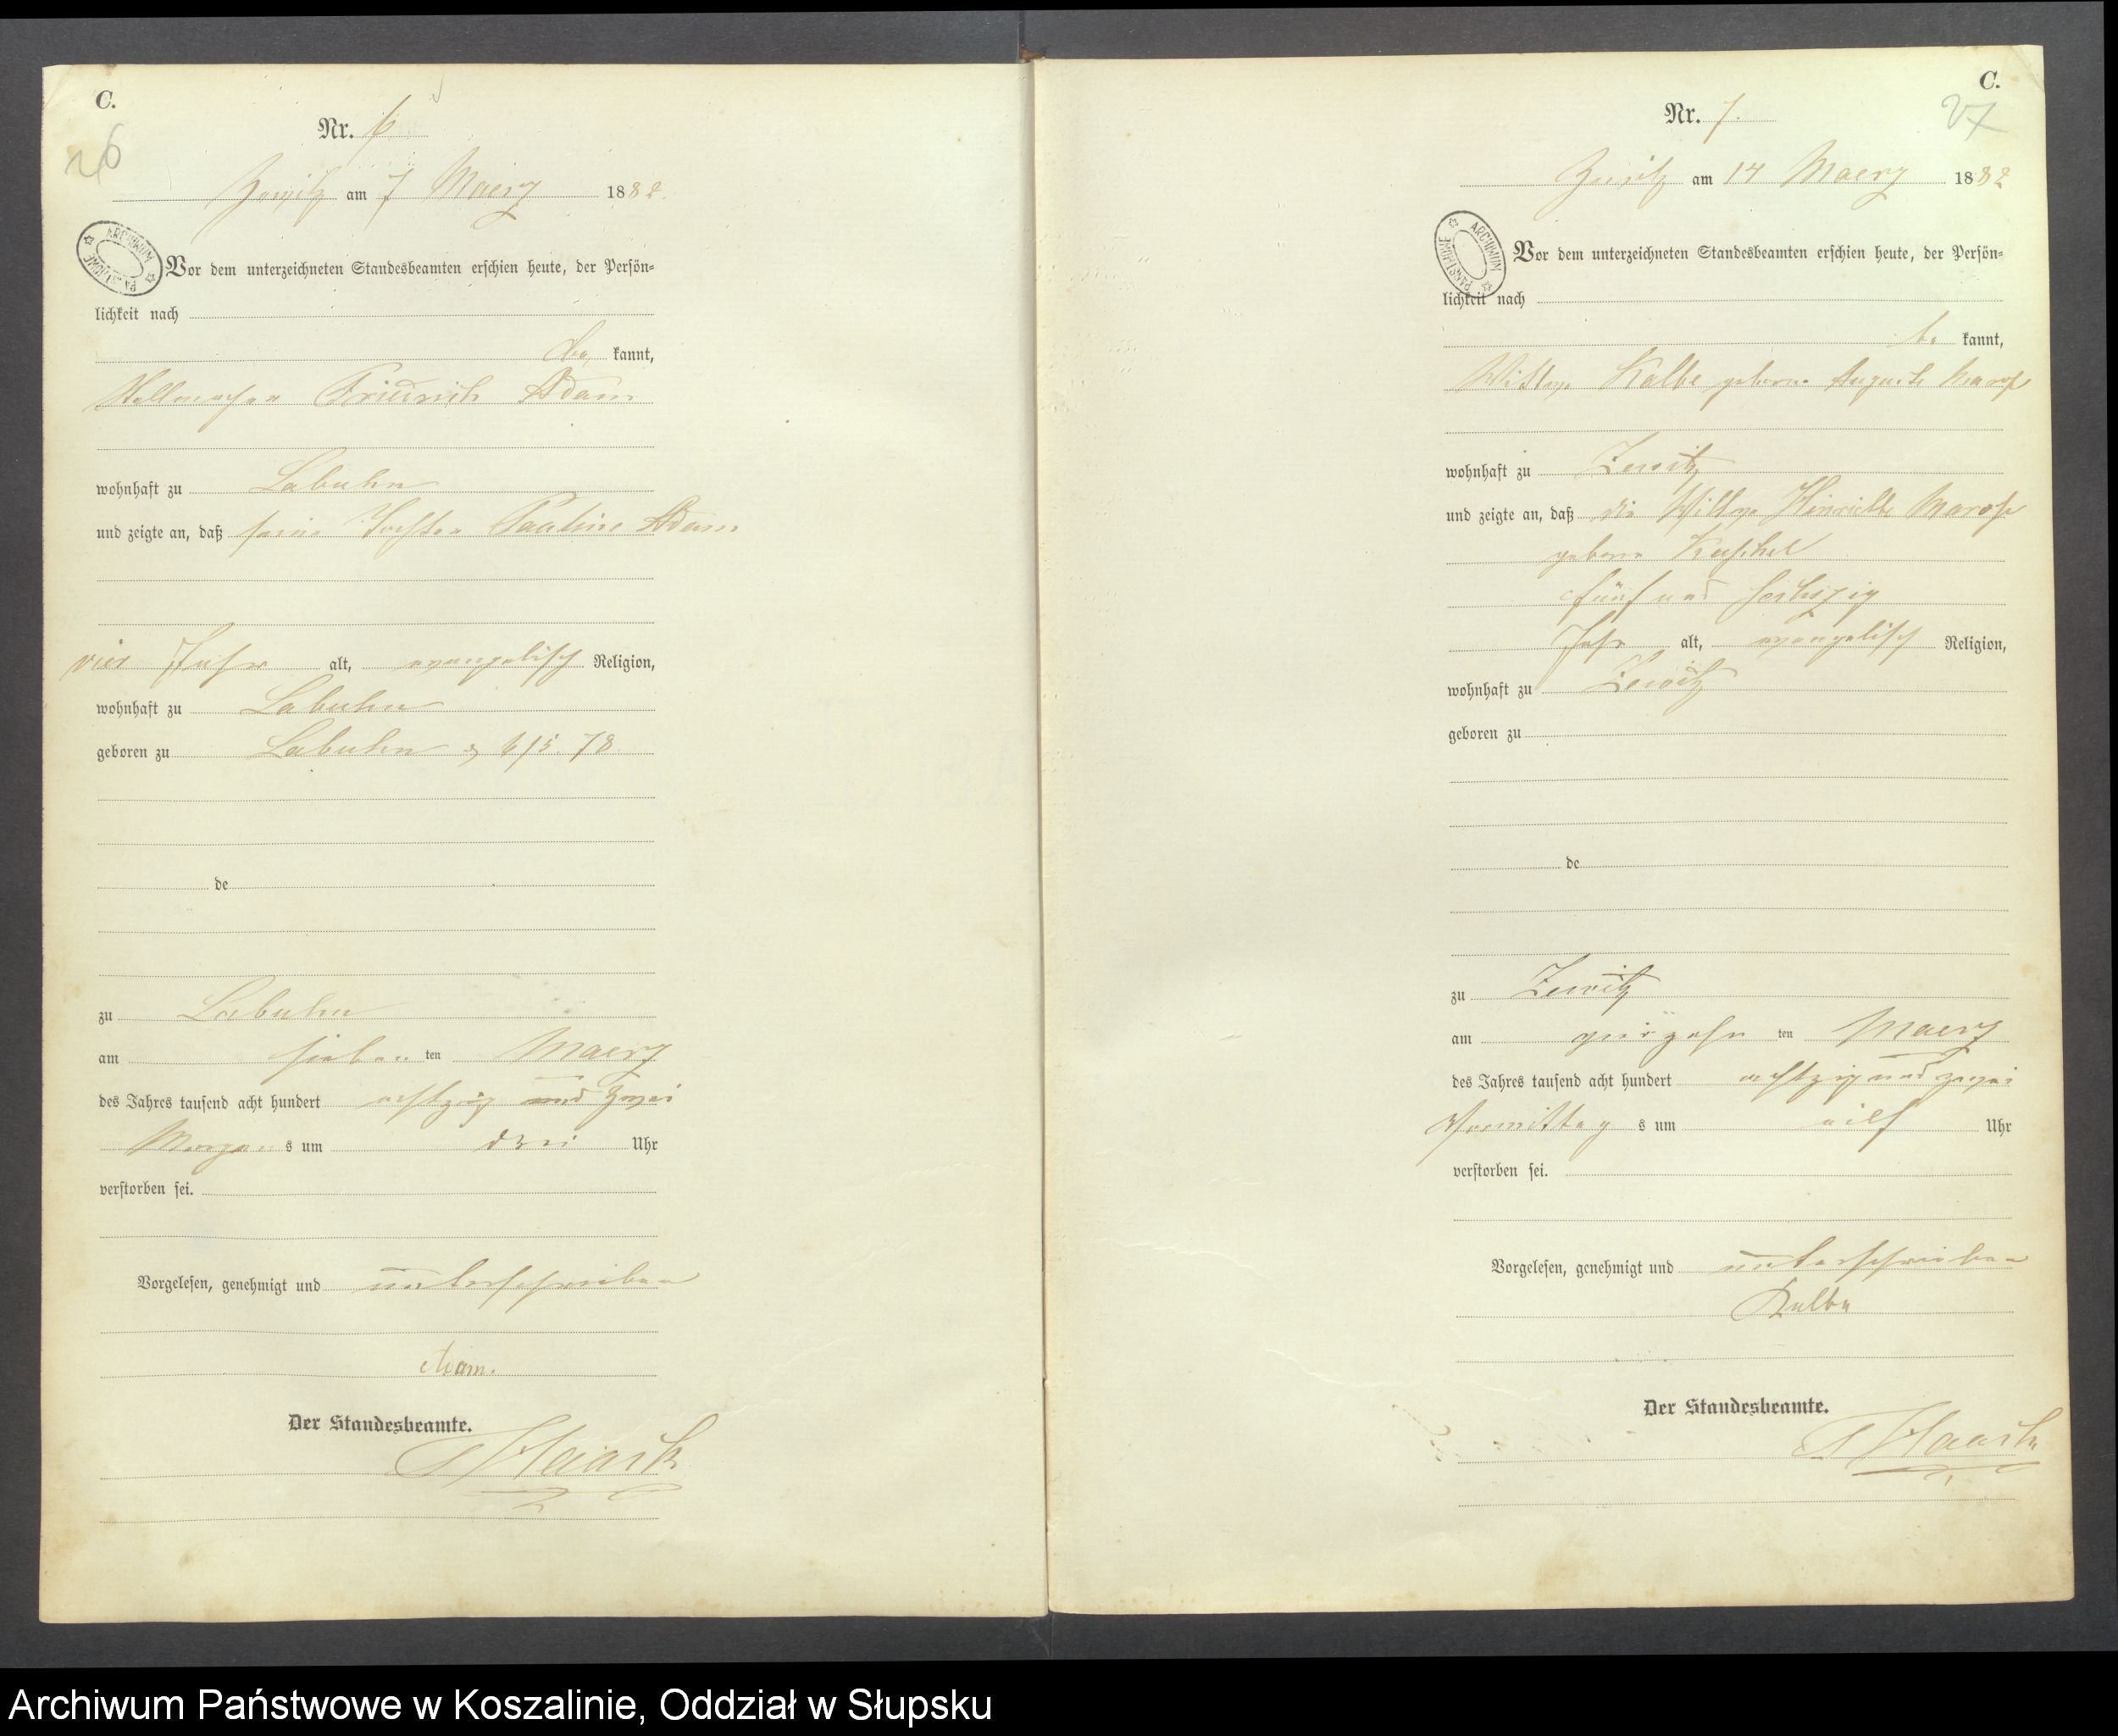 C.
26
Nr. 6
Zewitz am 7 Maerz 1882.
ARCHIWUM PAŃSTWOWE
Vor dem unterzeichneten Standesbeamten erschien heute, der Persön=
lichkeit nach
be kannt,
Friedrich Adam
wohnhaft zu Labuhn
und zeigte an, daß seine Tochter Pauline Adam
vier Jahr alt, evangelisch Religion,
wohnhaft zu Labuhn
geboren zu Labuhn d 6/5. 78
de
zu Labuhn
am sieben ten Maerz
des Jahres tausend acht hundert achtzig und zwei
Morgen s um drei Uhr
verstorben sei.
Vorgelesen, genehmigt und unterschrieben
Adam.
Der Standesbeamte.
Haack
C.
27
Nr. 7.
Zewitz am 14 Maerz 1882
ARCHIWUM PAŃSTWOWE
Vor dem unterzeichneten Standesbeamten erschien heute, der Persön=
lichkeit nach
be kannt,
Wittwe Kalbe geborne Auguste
wohnhaft zu Zewitz
und zeigte an, daß die Wittwe Hinriette
geborne Kuschel
fünf und sechszig
Jahr alt, evangelisch Religion,
wohnhaft zu Zewitz
geboren zu
de
zu Zewitz
am vierzehn ten Maerz
des Jahres tausend acht hundert achtzig und zwei
Vormittag s um eilf Uhr
verstorben sei.
Vorgelesen, genehmigt und unterschrieben
Kalbe
Der Standesbeamte.
Haack
Archiwum Państwowe w Koszalinie, Oddział w Słupsku